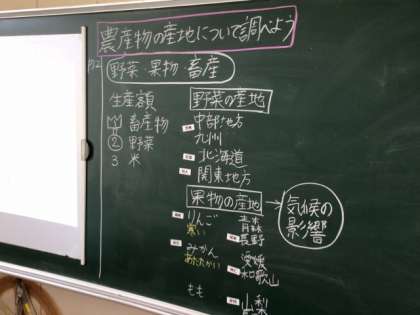 農産物の産地について調べよう
野菜・果物・畜産
生産額
1 畜産物
② 野菜
3. 米
野菜の産地
中部地方
九州
北海道
関東地方
果物の産地
気候の
影響
りんご
寒い
青森
長野
みかん
あたたかい
愛媛
和歌山
もも
山梨